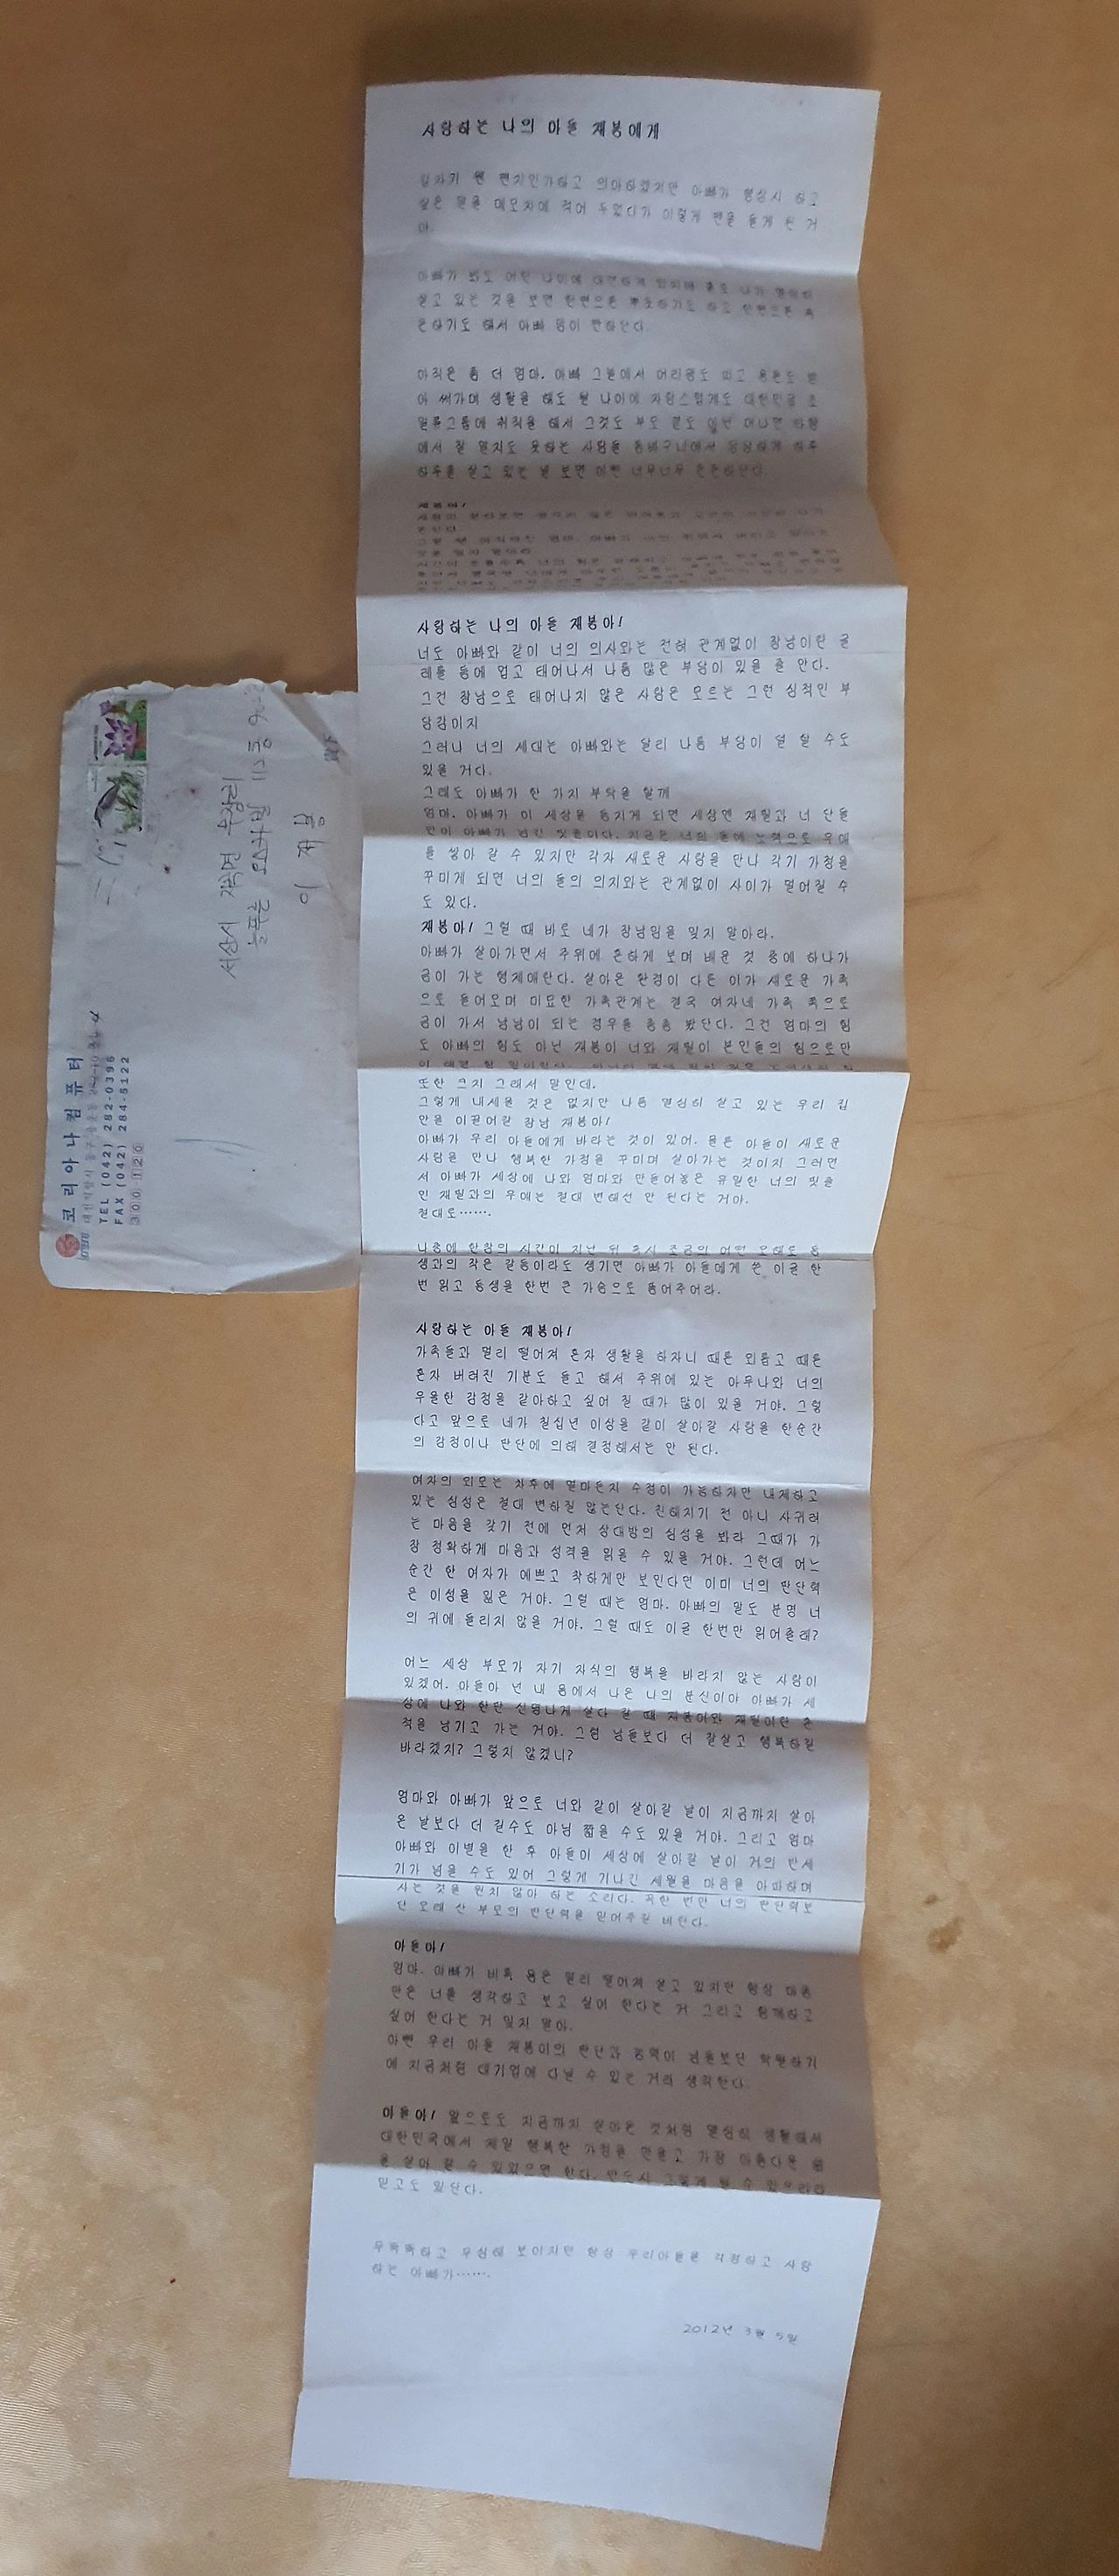 사랑하는 나의 아들 재봉에게
갑자기 웬 편지인가하고 의아하겠지만 아빠가 평상시 하고
싶은 말을 메모지에 적어 두었다가 이렇게 펜을 들게 된 거
야.
아빠가 봐도 어린 나이에
살고 있는 것을 보면 한편으론 뿌듯하기도 하고 한편으론
하기도 해서 아빠 맘이 짠하단다.
아직은 좀 더 엄마. 아빠 그늘에서 어리광도 피고 용돈도 받
아 써가며 생활을 해도 될 나이에 자랑스럽게도 대한민국 초
일류그룹에 취직을 해서 그것도 부모 곁도 아닌 머나먼 타향
에서 잘 알지도 못하는 사람들 틈바구니에서 당당하게 하루
하루를 살고 있는 널 보면 아빤 너무너무 든든하단다.
재봉아!
사랑하는 나의 아들 재봉아!
너도 아빠와 같이 너의 의사와는 전혀 관계없이 장남이란 굴
레를 등에 업고 태어나서 나름 많은 부담이 있을 줄 안다.
그건 장남으로 태어나지 않은 사람은 모르는 그런 심적인 부
담감이지
그러나 너의 세대는 아빠와는 달리 나름 부담이 덜 할 수도
있을 거다.
그래도 아빠가 한 가지 부탁을 할께
엄마. 아빠가 이 세상을 등지게 되면 세상엔 재월과 너 단둘
만이 아빠가 남긴 핏줄이다. 지금은 너의 둘에 노력으로 우애
를 쌓아 갈 수 있지만 각자 새로운 사람을 만나 각기 가정을
꾸미게 되면 너의 둘의 의지와는 관계없이 사이가 멀어질 수
도 있다.
재봉아! 그럴 때 바로 네가 장남임을 잊지 말아라.
아빠가 살아가면서 주위에 흔하게 보며 배운 것 중에 하나가
금이 가는 형제애란다. 살아온 환경이 다른 이가 새로운 가족
으로 들어오며 미묘한 가족관계는 결국 여자네 가족 쪽으로
금이 가서 남남이 되는 경우를 종종 봤단다. 그건 엄마의 힘
도 아빠의 힘도 아닌 재봉이 너와 재월이 본인들의 힘으로만
또한 크지 그래서 말인데.
그렇게 내세울 것은 없지만 나름 열심히 살고 있는 우리 집
안을 이끌어갈 장남 재봉아!
아빠가 우리 아들에게 바라는 것이 있어. 물론 아들이 새로운
사람을 만나 행복한 가정을 꾸미며 살아가는 것이지 그러면
서 아빠가 세상에 나와 엄마와 만들어놓은 유일한 너의 핏줄
인 재월과의 우애는 절대 변해선 안 된다는 거야.
절대로…….
나중에 한참의 시간이 지난 뒤 혹시 조금의 어떤 오해로 동
생과의 작은 갈등이라도 생기면 아빠가 아들에게 쓴 이글 한
번 읽고 동생을 한번 큰 가슴으로 품어주어라.
사랑하는 아들 재봉아!
가족들과 멀리 떨어져 혼자 생활을 하자니 때론 외롭고 때론
혼자 버려진 기분도 들고 해서 주위에 있는 아무나와 너의
우울한 감정을 같아하고 싶어 질 때가 많이 있을 거야. 그렇
다고 앞으로 네가 칠십년 이상을 같이 살아갈 사람을 한순간
의 감정이나 판단에 의해 결정해서는 안 된다.
여자의 외모는 차후에 얼마든지 수정이 가능하지만 내제하고
있는 심성은 절대 변하질 않는단다. 친해지기 전 아니 사귀려
는 마음을 갖기 전에 먼저 상대방의 심성을 봐라 그때가 가
장 정확하게 마음과 성격을 읽을 수 있을 거야. 그런데 어느
순간 한 여자가 예쁘고 착하게만 보인다면 이미 너의 판단력
은 이성을 잃은 거야. 그럴 때는 엄마. 아빠의 말도 분명 너
의 귀에 들리지 않을 거야. 그럴 때도 이글 한번만 읽어줄래?
어느 세상 부모가 자기 자식의 행복을 바라지 않는 사람이
있겠어. 아들아 넌 내 몸에서 나온 나의 분신이야 아빠가 세
상에 나와 한판 신명나게 살다 갈 때 재봉이와 재월이란 흔
적을 남기고 가는 거야. 그럼 남들보다 더 잘살고 행복하길
바라겠지? 그렇지 않겠니?
엄마와 아빠가 앞으로 너와 같이 살아갈 날이 지금까지 살아
온 날보다 더 길수도 아님 짧을 수도 있을 거야. 그리고 엄마
아빠와 이별을 한 후 아들이 세상에 살아갈 날이 거의 반세
기가 넘을 수도 있어 그렇게 기나긴 세월을 마음을 아파하며
사는 것을 원치 않아 하는 소리다. 꼭한 번만 너의 판단력보
단 오래 산 부모의 판단력을 믿어주길 바란다.
아들아!
엄마. 아빠가 비록 몸은 멀리 떨어져 살고 있지만 항상 마음
만은 너를 생각하고 보고 싶어 한다는 거 그리고 함께하고
싶어 한다는 거 잊지 말아.
아빤 우리 아들 재봉이의 판단과 능력이 남들보단 탁월하기
에 지금처럼 대기업에 다닐 수 있는 거라 생각한다.
아들아! 앞으로도 지금까지 살아온 것처럼 열심히 생활해서
대한민국에서 제일 행복한 가정을 만들고 가장 아름다운 삶
을 살아 갈 수 있었으면 한다. 반드시 그렇게 될 수 있으리라
믿고도 있단다.
무뚝뚝하고 무심해 보이지만 항상 우리아들을 걱정하고 사랑
하는 아빠가…….
2012년 3월 5일
서산시 지곡면 무장리
늘푸른 오스카빌 112동
이 재 봉
코리아나컴퓨터
대전광역시 동구
TEL (042) 282-0396
FAX (042) 284-5122
300-120